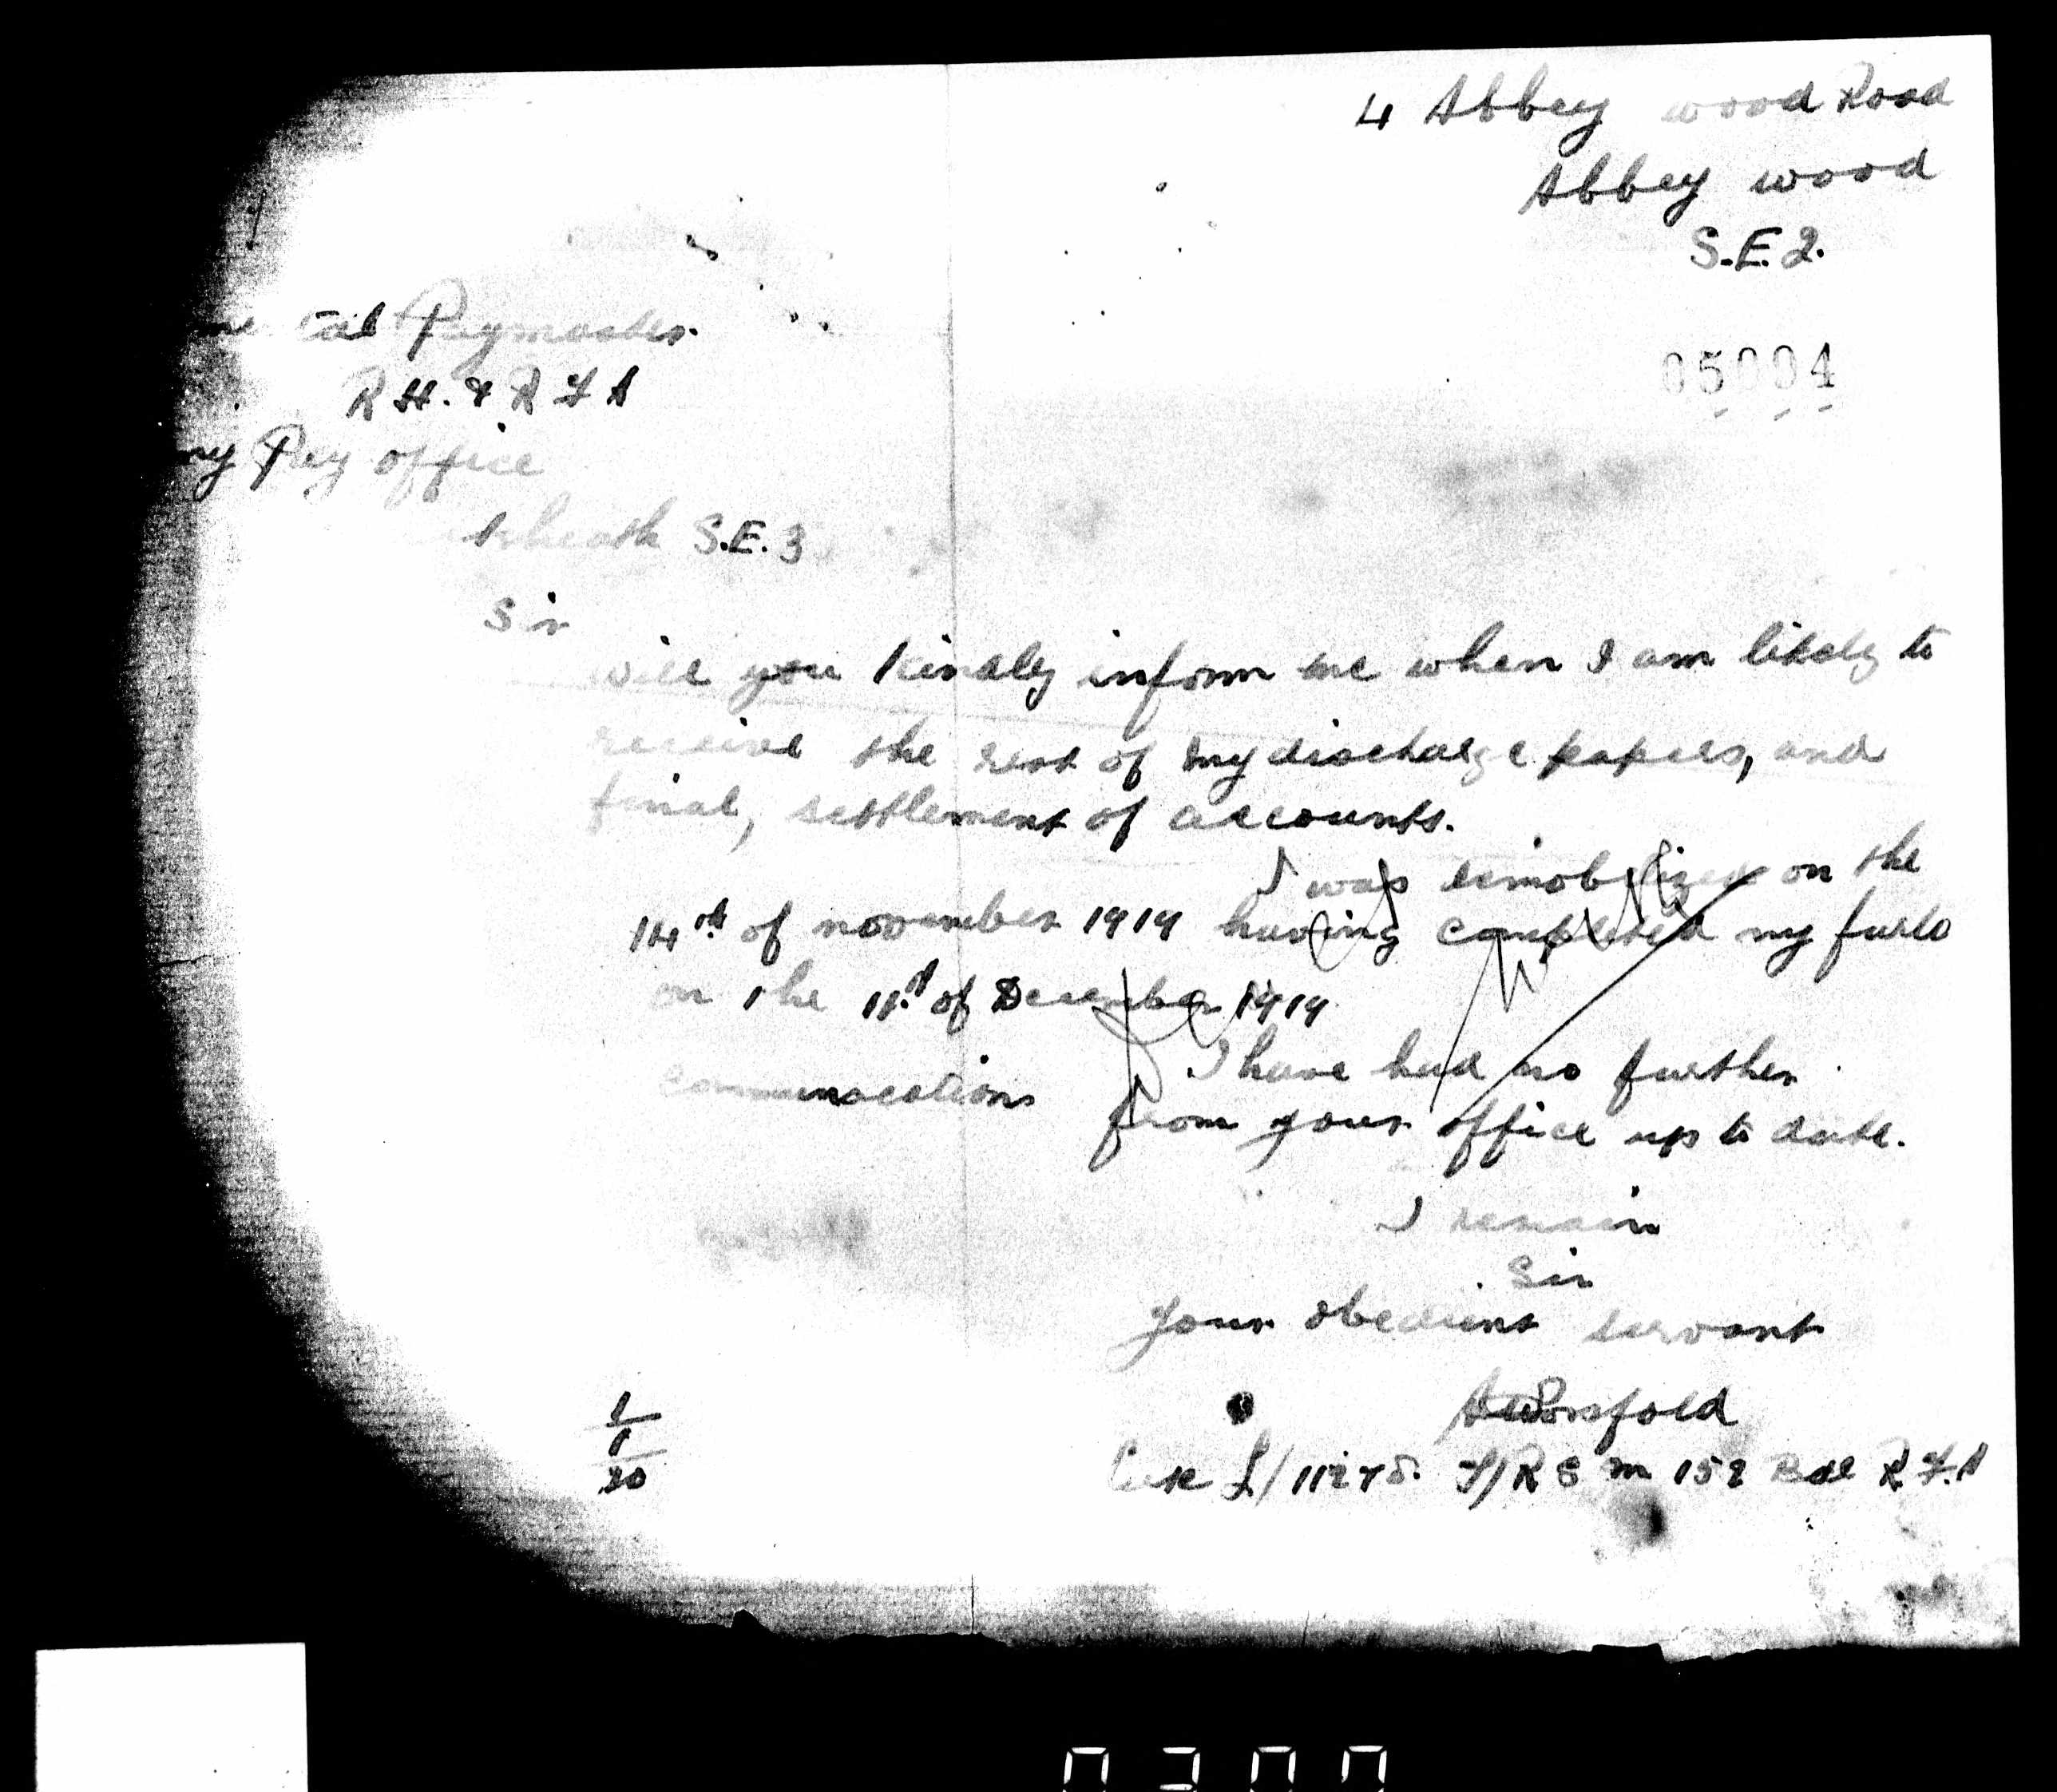 4 Abbey wood Road
Abbey wood
S.E.2.
05004
tal Paymaster.
R H. & R F A
my Pay office
heath S.E.3
Sir
Will you kindly inform me when I am likely to
receive the rest of my discharge papers, and
final, settlement of accounts.
I was demobilized on the
14th of november 1919 having completed my furlo
on the 11th of December 1919
I have had no further
communacations
from your office up to date.
I remain
Sir
Your obedient servant
1
1
20
L/11275. T/R S m 152 Bde R.F.A